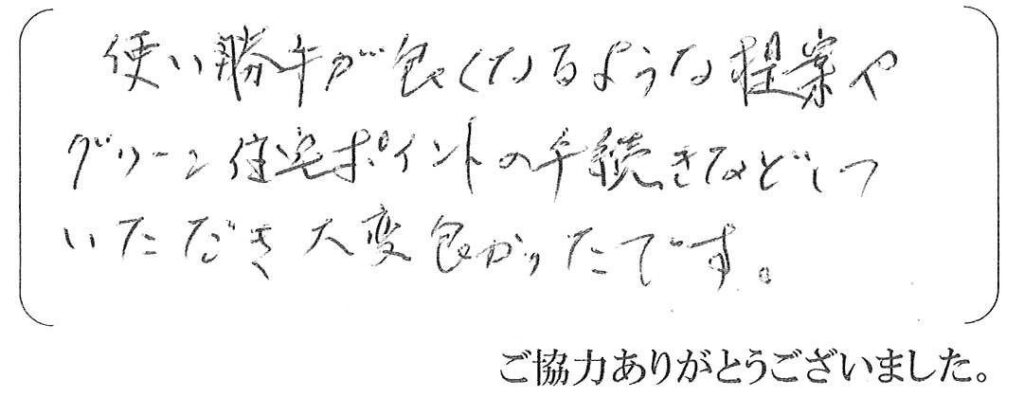 使い勝手が良くなるような提案や
グリーン住宅ポイントの手続きなどしつ
いただき大変良かったです。
ご協力ありがとうございました。